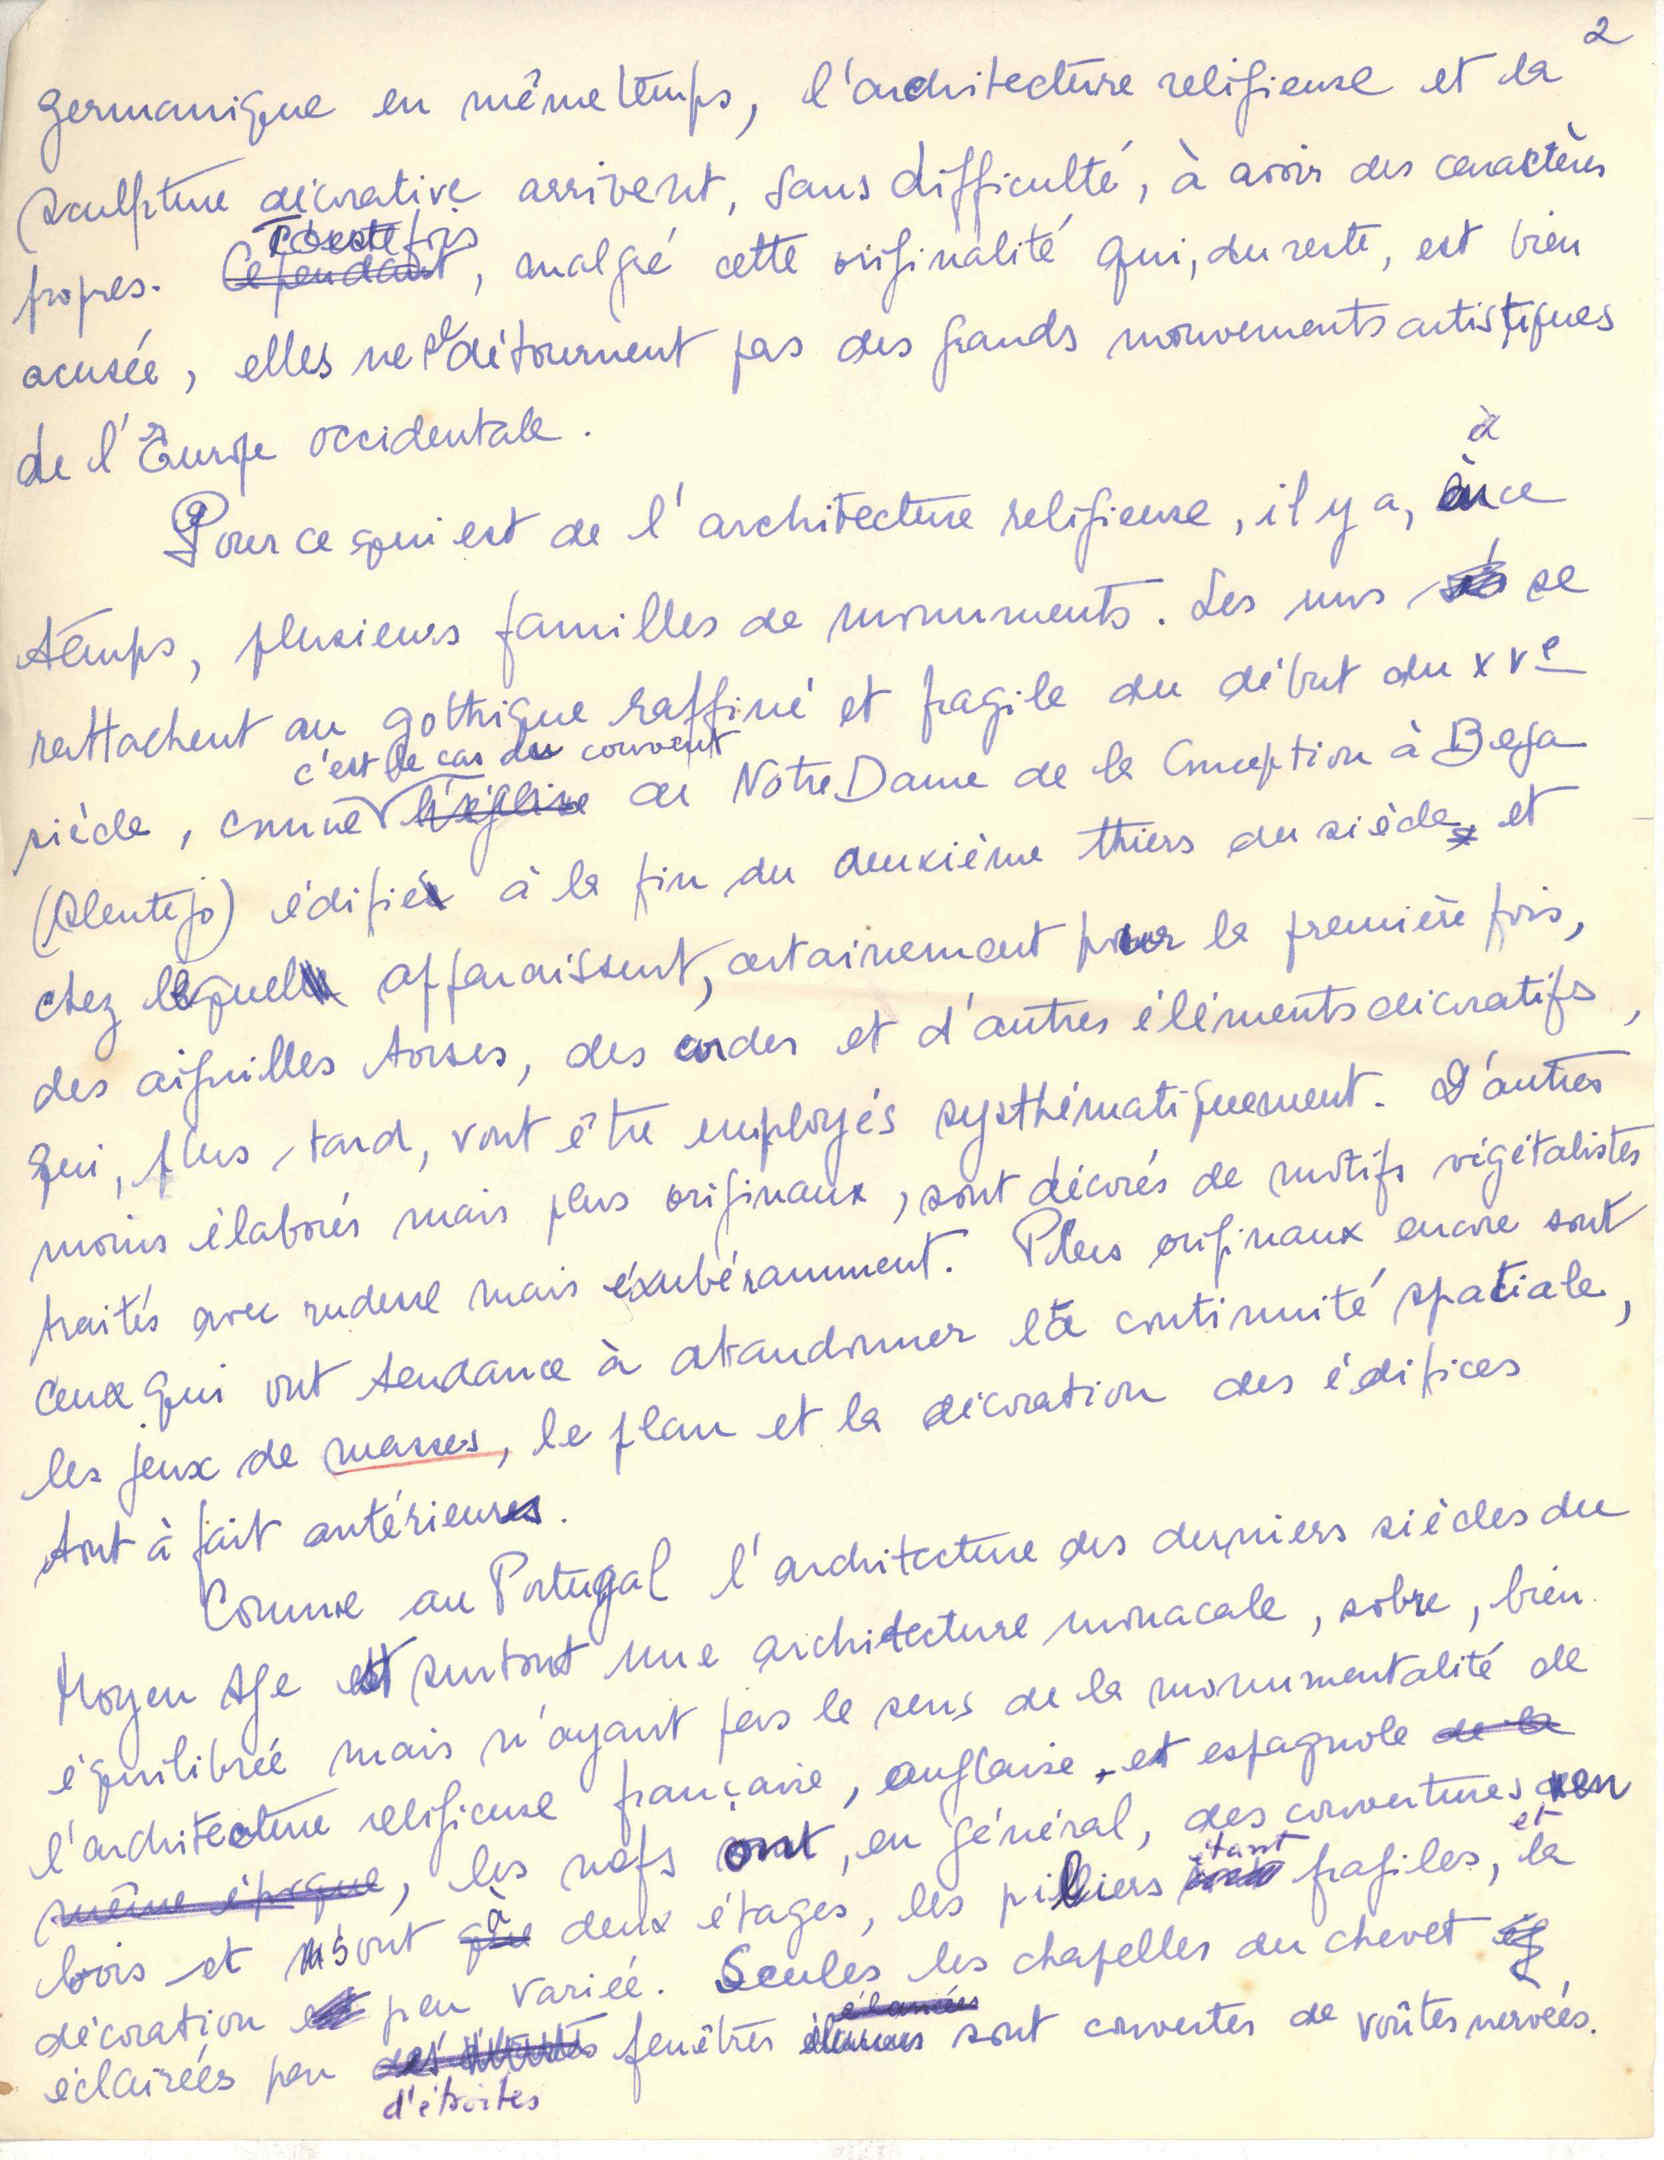 2
germanique en même temps, l'architecture religieuse et la
sculpture décorative arrivent, sans difficulté, à avoir des caractères
Toutefois
propres. Cependant, malgré cette originalité qui, du reste, est bien
acusée, elles ne se détournent pas des grands mouvements artistiques
de l'Europe occidentale.
à
Pour ce qui est de l'architecture religieuse, il y a, à ce
temps, plusieurs familles de monuments. Les uns se
rattachent au gothique raffiné et fragile du début du XVe
c'est le cas du couvent
siècle, comme l'église de Notre Dame de la Conception à Beja
(Alentejo) édifié à la fin du deuxième thiers du siècle, et
chez lequel apparaissent, certainement pour la première fois,
des aiguilles torses, des cordes et d'autres éléments décoratifs,
qui, plus tard, vont être employés systhématiquement. D'autres
moins élaborés mais plus originaux, sont décorés de motifs végétalistes
traités avec rudesse mais éxubéramment. Plus originaux encore sont
ceux qui ont tendance à abandonner la continuité spatiale,
les jeux de masses, le plan et la décoration des édifices
tout à fait antérieures.
Comme au Portugal l'architecture des derniers siècles du
Moyen Age est surtout une architecture monacale, sobre, bien
équilibrée mais n'ayant pas le sens de la monumentalité de
l'architecture religieuse française, anglaise et espagnole de la
même époque, les nefs ont, en général, des couvertures en
à étant et
bois et sont que deux étages, les piliers fragiles, la
décoration est peu variée. Seules les chapelles du chevet
élancées
éclairées par des étroites fenêtres élancées sont couvertes de voûtes nervées.
d'étroites